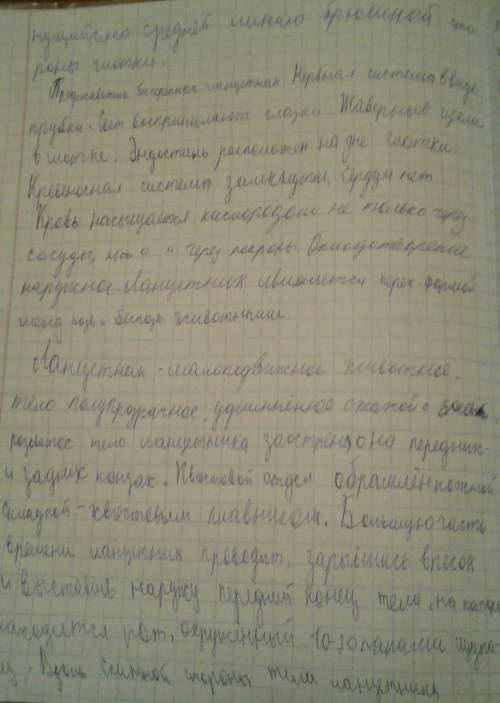 средней линию брюшной сто
роны глотки.
Представитель бесчерепных - ланцетник. Нервная система в виде
трубки. Свет воспринимают глазки. Жаберные щели
в глотке. Эндостиль расположен на дне глотки.
Кровеносная система замкнутая, сердца нет
Кровь насыщается кислородом не только через
сосуды, но и через покровы. Оплодотворение
наружное. Ланцетник является перех. формой
между позв и беспозв животными.
Ланцетник - малоподвижное животное,
тело полупрозрачное, удлинённое сжатой с боков,
тело ланцетника заострено на передних
и задних концах. Хвостовой отдел обрамлён кожной
складкой - хвостовым плавником. Большую часть
времени ланцетник проводит, зарывшись в песок
и выставив наружу передний конец тела, на котором
находится рот, окружённый 10-20 парами щупа-
лец. Вдоль спинной стороны тела ланцетника